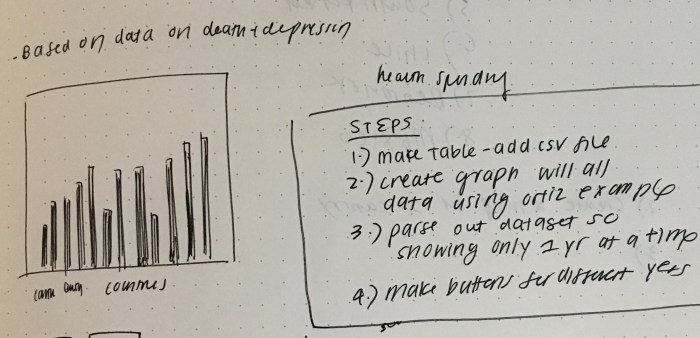 - Based on data on death + depression
health spending
STEPS:
1.) make table - add csv file
2.) create graph will all
data using ortiz example
3.) parse out dataset so
showing only 1 yr at a time
4.) make buttons for different yers
countries